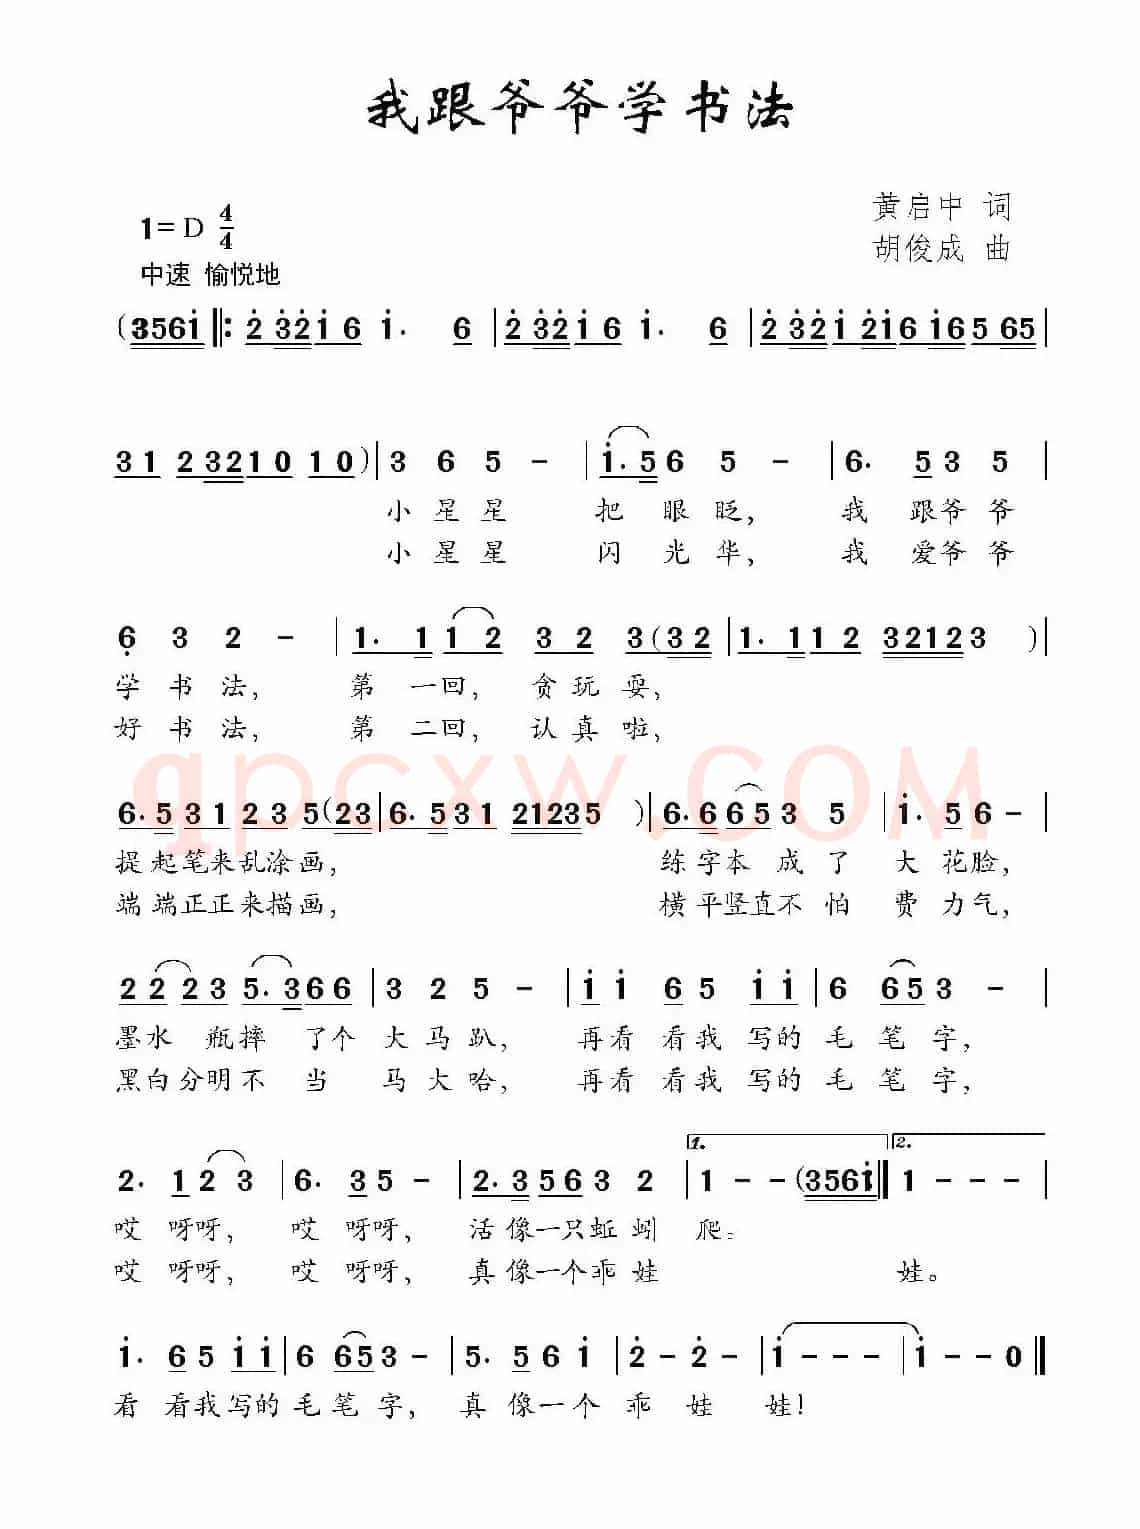 我跟爷爷学书法
黄启中 词
1=D 4/4
胡俊成 曲
中速 愉悦地
(3561 ‖: 2 32 1 6 1· 6 | 2 32 1 6 1· 6 | 2 32 1 21 6 16 5 65 |
3 1 2 32 1 0 1 0 ) | 3 6 5 - | 1·5 6 5 - | 6· 5 3 5 |
小 星 星 把 眼 眨， 我 跟 爷 爷
小 星 星 闪 光 华， 我 爱 爷 爷
6 3 2 - | 1· 1 1 2 3 2 3 (32 | 1· 1 1 2 3212 3 ) |
学 书 法， 第 一 回， 贪 玩 耍，
好 书 法， 第 二 回， 认 真 啦，
qpcxw.COM
6·5 3 1 2 3 5 (23 | 6·5 3 1 21235 ) | 6·6 6 5 3 5 | 1· 5 6 - |
提 起 笔 来 乱 涂 画， 练 字 本 成 了 大 花 脸，
端 端 正 正 来 描 画， 横 平 竖 直 不 怕 费 力 气，
2 2 2 3 5·3 6 6 | 3 2 5 - | 1 1 6 5 1 1 | 6 6 5 3 - |
墨 水 瓶 摔 了 个 大 马 趴， 再 看 看 我 写 的 毛 笔 字，
黑 白 分 明 不 当 马 大 哈， 再 看 看 我 写 的 毛 笔 字，
1. 2.
2· 1 2 3 | 6· 3 5 - | 2·3 5 6 3 2 | 1 - - (3561 :‖ 1 - - - |
哎 呀 呀， 哎 呀 呀， 活 像 一 只 蚯 蚓 爬。
哎 呀 呀， 哎 呀 呀， 真 像 一 个 乖 娃 娃。
1· 6 5 1 1 | 6 6 5 3 - | 5· 5 6 1 | 2 - 2 - | 1 - - - | 1 - - 0 ‖
看 看 我 写 的 毛 笔 字， 真 像 一 个 乖 娃 娃！